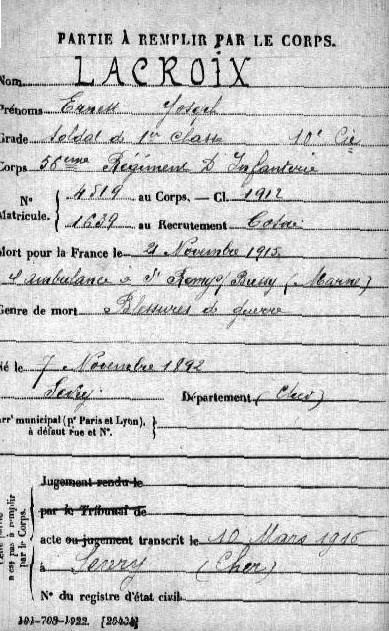 PARTIE À REMPLIR PAR LE CORPS.
Nom LACROIX
Prénoms Ernest Joseph
Grade Soldat de 1re classe 10e Cie
Corps 56ème Régiment D'Infanterie
N° Matricule. { 4819 au Corps. — Cl. 1912
1639 au Recrutement Cosne
Mort pour la France le 21 Novembre 1915
à l'ambulance à St Remy s/ Bussy (Marne)
Genre de mort Blessures de guerre
Né le 7 Novembre 1892
Sevry Département (Cher)
Arr' municipal (pr Paris et Lyon), à défaut rue et N°. }
Jugement rendu le
par le Tribunal de
acte ou jugement transcrit le 10 Mars 1916
à Sevry (Cher)
N° du registre d'état civil
n'est pas à remplir par le Corps.
101-708-1922. [26434]